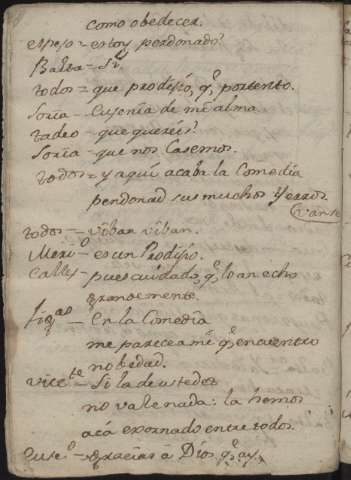 como obedecer.
espejo = estoy perdonado?
Balta = Si.
todos = que prodijio, q.e portento.
Soria = Eusenia de mi alma.
tadeo = que quereis?
Soria = que nos Casemos.
todos = y aqui acaba la Comedia
perdonad sus muchos Yerros
vanse
todos = viban viban.
= es un Prodijio.
Calleja = pues cuidado, q.e lo an echo
grandemente.
figao = En la Comedia
me parece a mi q.e encuentro
nobedad.
vicete = Si la de ustedes
no vale nada: la hemos
acá exornado entre todos.
Euse.o = Gracias á Dios, q.e ay